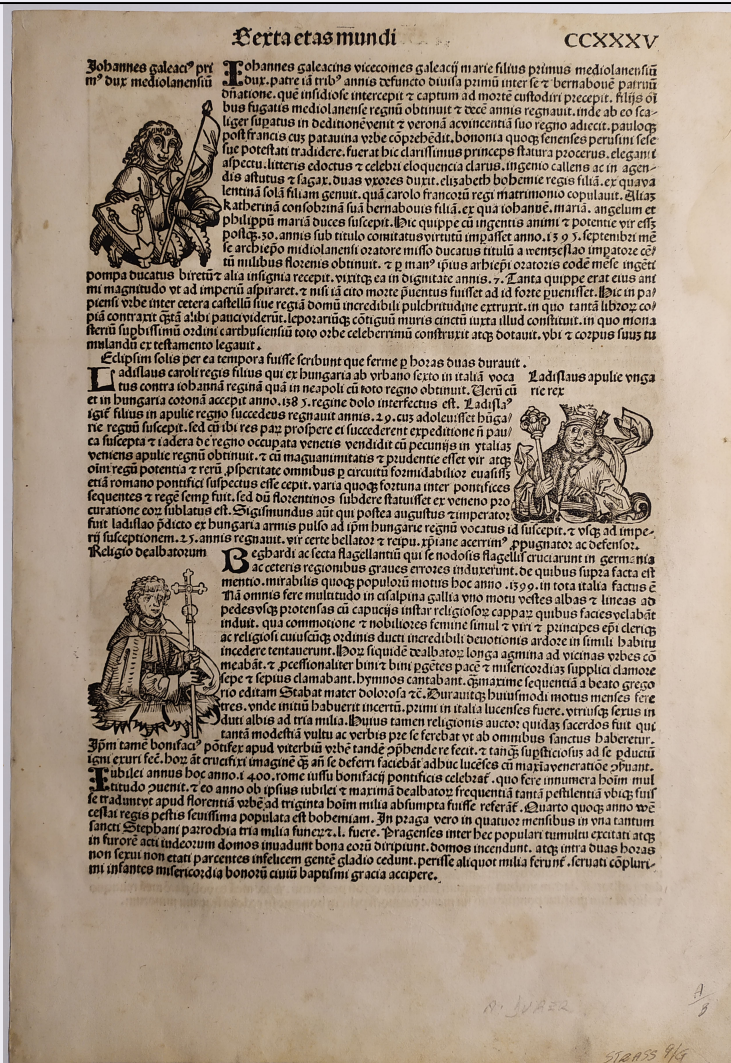 Sexta etas mundi
CCXXXV
Johannes galeaciꝰ pri
mꝰ dux mediolanensiū
Iohannes galeacius vicecomes galeacij marie filius primus mediolanensiū
dux. patre iā tribꝰ annis defuncto diuisa primū inter se ⁊ bernabouē patruū
dn̄atione. quē insidiose intercepit ⁊ captum ad mortē custodiri precepit. filijs oī
bus fugatis mediolanense regnū obtinuit ⁊ decē annis regnauit. inde ab eo sca-
liger supatus in deditionē venit ⁊ veronā ac vincentiā suo regno adiecit. pauloqꝫ
post francis cuꝫ patauina vrbe cōprehēdit. bononia quoqꝫ senenses perusini sese
sue potestati tradidere. fuerat hic clarissimus princeps statura procerus. eleganti
aspectu. litteris edoctus ⁊ celebri eloquencia clarus. ingenio callens ac in agen-
dis astutus ⁊ sagax. duas vxores duxit. elizabeth bohemie regis filiā. ex qua va
lentinā solā filiam genuit. quā carolo francorū regi matrimonio copulauit. Aliaꝫ
katherinā consobrinā suā bernabouis filiā. ex qua iohannē. mariā. angelum et
philippū mariā duces suscepit. Hic quippe cū ingentis animi ⁊ potentie vir essꝫ
postqꝫ. 30. annis sub titulo comitatus virtutū impasset anno. 1395. septembri mē
se archiepō midiolanensi oratore misso ducatus titulū a wentzeslao impatore cē
tū milibus florenis obtinuit. ⁊ p manꝰ ipius arhiepi oratoris eodē mēse ingēti
pompa ducatus biretū ⁊ alia insignia recepit. vixitqꝫ ea in dignitate annis. 7. Tanta quippe erat eius ani
mi magnitudo vt ad imperiū aspiraret. ⁊ nisi iā cito morte puentus fuisset ad id forte puenisset. Hic in pa-
piensi vrbe inter cetera castellū siue regiā domū incredibili pulchritudine extruxit. in quo tantā libroꝝ co-
piā contraxit qꝫtā alibi pauci viderūt. leporariūqꝫ cōtiguū muris cinctū iuxta illud constituit. in quo mona
steriū supbissimū ordini carthusiensiū toto orbe celeberrimū construxit atqꝫ dotauit. vbi ⁊ corpus suuꝫ tu
mulandū ex testamento legauit.
Eclipsim solis per ea tempora fuisse scribunt que ferme p horas duas durauit.
Ladislaus caroli regis filius qui ex hungaria ab vrbano sexto in italiā voca
tus contra iohannā reginā quā in neapoli cū toto regno obtinuit. Verū cū
et in hungaria coronā accepit anno. 1385. regine dolo interfectus est. Ladislaꝰ
igit̄ filius in apulie regno succedens regnauit annis. 29. cuꝫ adoleuisset hūga-
rie regnū suscepit. sed cū ibi res paꝝ prospere ei succederent expeditione n̄ pau-
ca suscepta ⁊ iadera de regno occupata venetis vendidit cū pecunijs in ytaliaꝫ
veniens apulie regnū obtinuit. ⁊ cū magnanimitatis ⁊ prudentie esset vir atqꝫ
oīm regū potentia ⁊ rerū prosperitate omnibus p circuitū formidabilior euasissꝫ
etiā romano pontifici suspectus esse cepit. varia quoqꝫ fortuna inter pontifices
sequentes ⁊ regē semp fuit. sed dū florentinos subdere statuisset ex veneno pro
curatione eoꝝ sublatus est. Sigismundus aūt qui postea augustus ⁊ imperator
fuit ladislao p̄dicto ex hungaria armis pulso ad ipm hungarie regnū vocatus id suscepit. ⁊ vsqꝫ ad impe-
rij susceptionem. 25. annis regnauit. vir certe bellator ⁊ reipu. xp̄iane acerrimꝰ ppugnator ac defensor.
Ladislaus apulie vnga
rie rex
Religio dealbatorum
Beghardi ac secta flagellantiū qui se nodosis flagellis cruciarunt in germania
ac ceteris regionibus graues errores induxerunt. de quibus supra facta est
mentio. mirabilis quoqꝫ populorū motus hoc anno. 1399. in tota italia factus ē
Nā omnis fere multitudo in cisalpina gallia vno motu vestes albas ⁊ lineas ad
pedes vsqꝫ protensas cū capucijs instar religiosoꝝ cappaꝝ quibus facies velabāt
induit. qua commotione ⁊ nobiliores femine simul ⁊ viri ⁊ principes epi cleriqꝫ
ac religiosi cuiuscūqꝫ ordinis ducti incredibili deuotionis ardore in simili habitu
incedere tentauerunt. Hoꝝ siquidē dealbatoꝝ longa agmina ad vicinas vrbes cō
meabāt. ⁊ processionaliter bini ⁊ bini pgētes pacē ⁊ misericordiaꝫ supplici clamore
sepe ⁊ sepius clamabant. hymnos cantabant. qꝫ maxime sequentiā a beato grego
rio editam Stabat mater dolorosa ⁊c̄. Durauitqꝫ huiusmodi motus menses fere
tres. vnde initiū habuerit incertū. primi in italia lucenses fuere. vtriusqꝫ sexus in
duti albis ad tria milia. Huius tamen religionis auctor quidaꝫ sacerdos fuit qui
tantā modestiā vultu ac verbis pre se ferebat vt ab omnibus sanctus haberetur.
Ipm tamē bonifaciꝰ pōtifex apud viterbiū vrbē tandē cōphendere fecit. ⁊ tanqꝫ supsticiosuꝫ ad se pductū
igni exuri fec̄. hoꝝ āt crucifixi imaginē qꝫ an̄ se deferri faciebāt adhuc lucēses cū maxīa veneratiōe obseruant.
Iubilei annus hoc anno. 1400. rome iussu bonifacij pontificis celebrat̄. quo fere innumera hoīm mul
titudo cōuenit. ⁊ eo anno ob ipsius iubilei ⁊ maximā dealbatoꝝ frequentiā tanta pestilentia vbiqꝫ fuis
se traduntvt apud florentiā vrbē ad triginta hoīm milia absumpta fuisse referāt̄. Quarto quoqꝫ anno wē
ceslai regis pestis seuissima populata est bohemiam. In praga vero in quatuor mensibus in vna tantum
sancti Stephani parrochia tria milia funeꝝ ⁊. l. fuere. Pragenses inter hec populari tumultu excitati atqꝫ
in furorē acti iudeorum domos inuadunt bona eorū diripiunt. domos incendunt. atqꝫ intra duas horas
non sexui non etati parcentes infelicem gentē gladio cedunt. perisse aliquot milia ferunt̄. seruati cōpluri-
mi infantes misericordia bonorū ciuiū baptismi gracia accipere.
A. DURER
A/B
STRASS 9/G